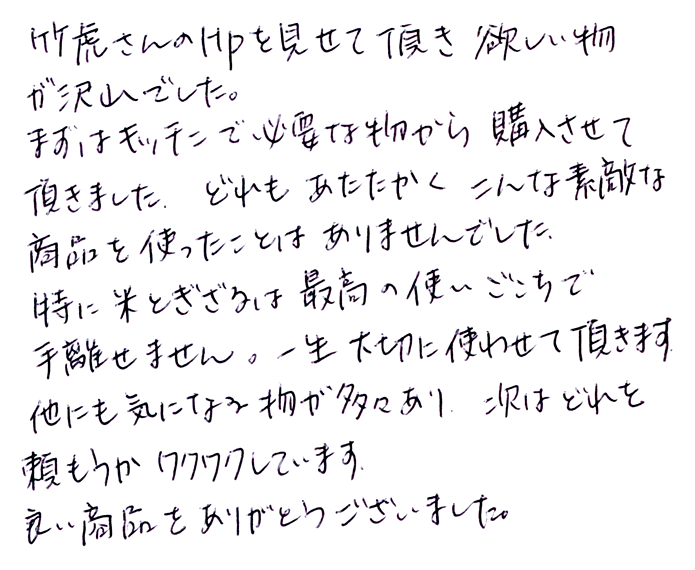 竹虎さんのHpを見せて頂き 欲しい物
が沢山でした。
まずはキッチンで必要な物から 購入させて
頂きました. どれも あたたかく こんな素敵な
商品を使ったことは ありませんでした.
特に 米とぎざるは 最高の使いごこちで
手離せません。一生 大切に使わせて頂きます.
他にも気になる物が多々あり. 次はどれを
頼もうか ワクワクしています.
良い商品をありがとうございました。